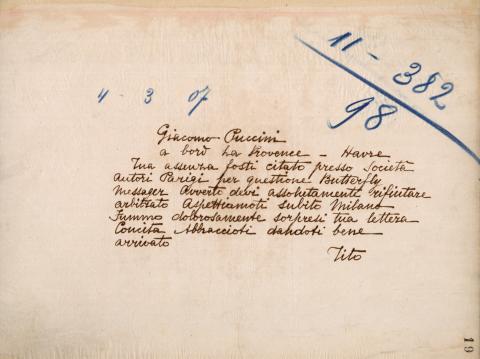 11 - 382
98
4 - 3 07
Giacomo Puccini
a bord La Provence - Havre
Tua assenza fosti citato presso Società
Autori Parigi per questione Butterfly
Messager Avverto devi assolutamente rifiutare
arbitrato Aspettiamoti subito Milano
Fummo dolorosamente sorpresi tua lettera
Concita Abbraccioti dandoti bene
arrivato
Tito
19